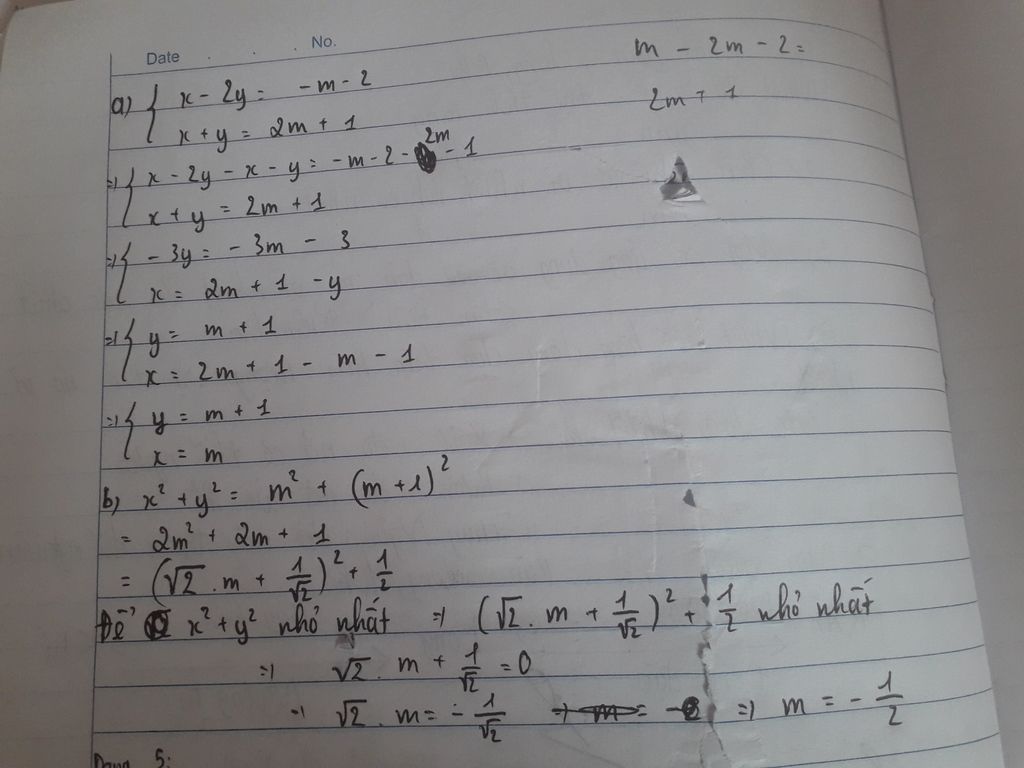 Date . . No.
m - 2m - 2 =
2m + 1
a) { x - 2y = -m - 2
x + y = 2m + 1
=> { x - 2y - x - y = -m - 2 - 2m - 1
x + y = 2m + 1
=> { - 3y = - 3m - 3
x = 2m + 1 - y
=> { y = m + 1
x = 2m + 1 - m - 1
=> { y = m + 1
x = m
b) x² + y² = m² + (m + 1)²
= 2m² + 2m + 1
= (√2 . m + 1/√2)² + 1/2
Để x² + y² nhỏ nhất => (√2 . m + 1/√2)² + 1/2 nhỏ nhất
=> √2 . m + 1/√2 = 0
=> √2 . m = - 1/√2 => m = - 1/2
Dạng 5: